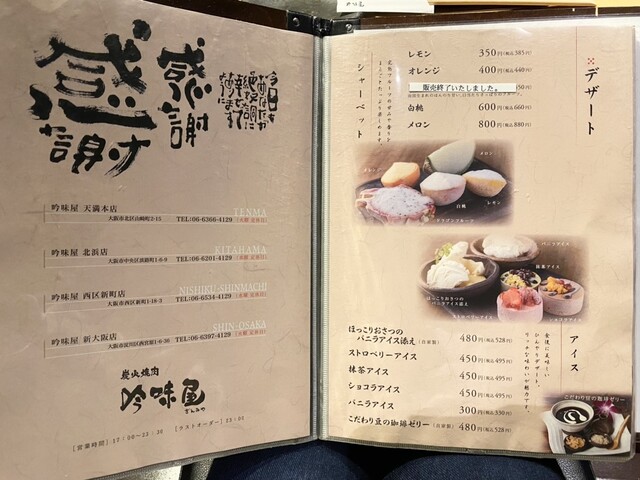 感謝
感謝
今日も
吟味屋 天満本店
TEL:06-6366-4129
TENMA
吟味屋 北浜店
TEL:06-6201-4129
KITAHAMA
吟味屋 西区新町店
TEL:06-6534-4129
NISHIKU-SHINMACHI
吟味屋 新大阪店
TEL:06-6397-4129
SHIN-OSAKA
炭火焼肉
吟味屋
ぎんみや
[営業時間] 17:00〜23:30
デザート
シャーベット
レモン 350円(税込385円)
オレンジ 400円(税込440円)
販売終了いたしました。
白桃 600円(税込660円)
メロン 800円(税込880円)
メロン
白桃
レモン
バニラアイス
抹茶アイス
ほっこりおさつの
バニラアイス添え
アイス
食後に美味しい
ひんやりデザート。
リッチな味わいが魅力です。
ほっこりおさつの
バニラアイス添え(自家製) 480円(税込528円)
ストロベリーアイス 450円(税込495円)
抹茶アイス 450円(税込495円)
ショコラアイス 450円(税込495円)
バニラアイス 300円(税込330円)
こだわり豆の珈琲ゼリー(自家製) 480円(税込528円)
こだわり豆の珈琲ゼリー